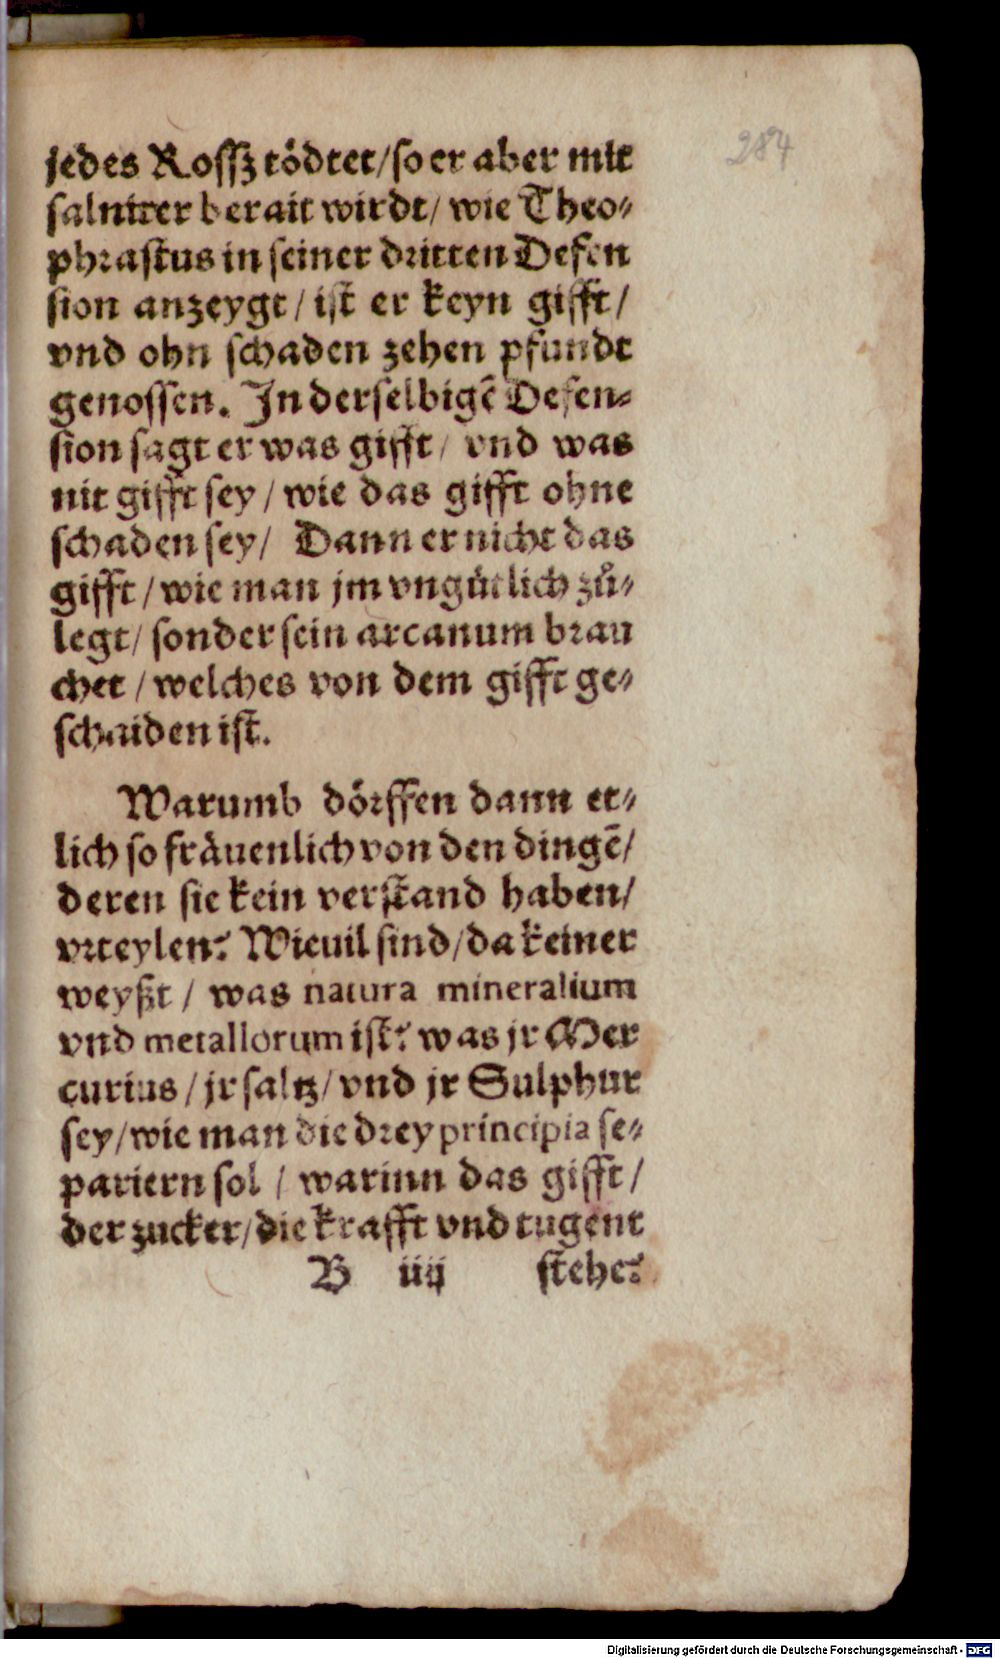 284
jedes Rossz tödtet/so er aber mit
salniter berait wirdt/ wie Theo⸗
phrastus in seiner dritten Defen
sion anzeygt/ist er keyn gifft/
vnd ohn schaden zehen pfundt
genossen. In derselbigē Defen⸗
sion sagt er was gifft/ vnd was
nit gifft sey/ wie das gifft ohne
schaden sey/ Dann er nicht das
gifft/wie man jm vngütlich zů⸗
legt/ sonder sein arcanum brau
chet/welches von dem gifft ge⸗
schaiden ist.
Warumb dörffen dann et⸗
lich so fräuenlich von den dingē/
deren sie kein verstand haben/
vrteylen? Wieuil sind/da keiner
weyßt/ was natura mineralium
vnd metallorum ist? was jr Mer
curius/jr saltz/vnd jr Sulphur
sey/wie man die drey principia se⸗
pariern sol/ warinn das gifft/
der zucker/die krafft vnd tugent
B iiij stehe?
Digitalisierung gefördert durch die Deutsche Forschungsgemeinschaft - DFG